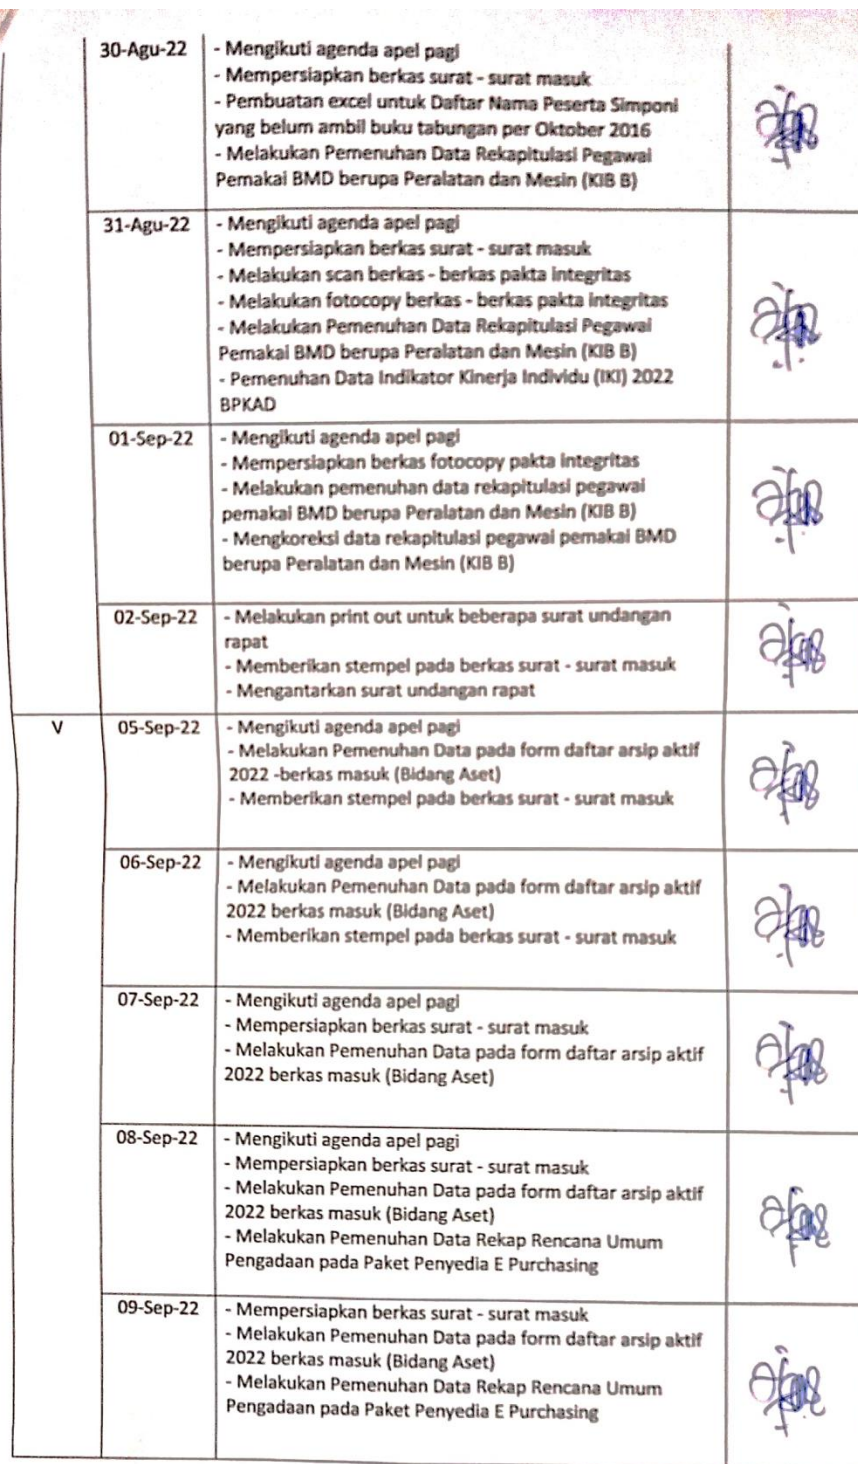 30-Agu-22
- Mengikuti agenda apel pagi
- Mempersiapkan berkas surat - surat masuk
- Pembuatan excel untuk Daftar Nama Peserta Simponi
yang belum ambil buku tabungan per Oktober 2016
- Melakukan Pemenuhan Data Rekapitulasi Pegawai
Pemakai BMD berupa Peralatan dan Mesin (KIB B)
31-Agu-22
- Mengikuti agenda apel pagi
- Mempersiapkan berkas surat - surat masuk
- Melakukan scan berkas - berkas pakta integritas
- Melakukan fotocopy berkas - berkas pakta integritas
- Melakukan Pemenuhan Data Rekapitulasi Pegawai
Pemakai BMD berupa Peralatan dan Mesin (KIB B)
- Pemenuhan Data Indikator Kinerja Individu (IKI) 2022
BPKAD
01-Sep-22
- Mengikuti agenda apel pagi
- Mempersiapkan berkas fotocopy pakta integritas
- Melakukan pemenuhan data rekapitulasi pegawai
pemakai BMD berupa Peralatan dan Mesin (KIB B)
- Mengkoreksi data rekapitulasi pegawai pemakai BMD
berupa Peralatan dan Mesin (KIB B)
02-Sep-22
- Melakukan print out untuk beberapa surat undangan
rapat
- Memberikan stempel pada berkas surat - surat masuk
- Mengantarkan surat undangan rapat
V
05-Sep-22
- Mengikuti agenda apel pagi
- Melakukan Pemenuhan Data pada form daftar arsip aktif
2022 -berkas masuk (Bidang Aset)
- Memberikan stempel pada berkas surat - surat masuk
06-Sep-22
- Mengikuti agenda apel pagi
- Melakukan Pemenuhan Data pada form daftar arsip aktif
2022 berkas masuk (Bidang Aset)
- Memberikan stempel pada berkas surat - surat masuk
07-Sep-22
- Mengikuti agenda apel pagi
- Mempersiapkan berkas surat - surat masuk
- Melakukan Pemenuhan Data pada form daftar arsip aktif
2022 berkas masuk (Bidang Aset)
08-Sep-22
- Mengikuti agenda apel pagi
- Mempersiapkan berkas surat - surat masuk
- Melakukan Pemenuhan Data pada form daftar arsip aktif
2022 berkas masuk (Bidang Aset)
- Melakukan Pemenuhan Data Rekap Rencana Umum
Pengadaan pada Paket Penyedia E Purchasing
09-Sep-22
- Mempersiapkan berkas surat - surat masuk
- Melakukan Pemenuhan Data pada form daftar arsip aktif
2022 berkas masuk (Bidang Aset)
- Melakukan Pemenuhan Data Rekap Rencana Umum
Pengadaan pada Paket Penyedia E Purchasing